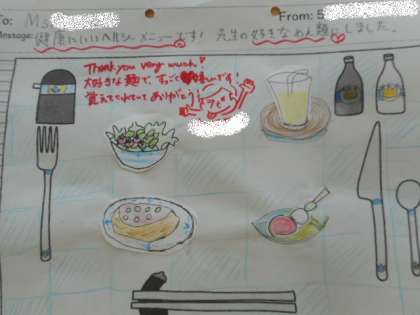 To: Ms
From: 5
Message: 健康にいいヘルシーメニューです! 先生の好きなめん類にしました。
Thank you very much!
大好きな麺で、すごく嬉しいです!
覚えてくれててありがとう!